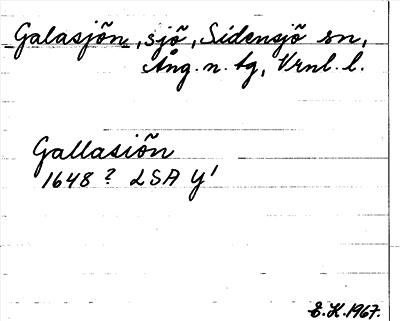 Galasjön, sjö, Sidensjö sn,
Ång. n. tg, Vrnl. l.
Gallasiön
1648? LSA Y¹
E.H. 1967.